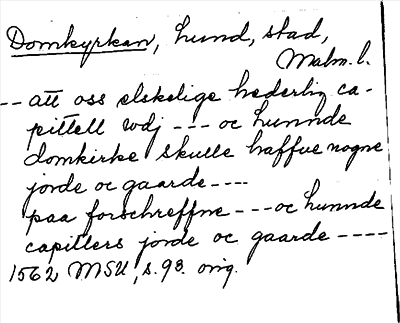 Domkyrkan, Lund, stad,
Malm. l.
-- att oss elskelige hederlig ca-
pittell wdj --- oc Lunnde
domkirke skulle haffue nogne
jorde oc gaarde ----
paa forschreffne --- oc Lunnde
capitlers jorde oc gaarde ----
1562 MSU, s. 93. orig.